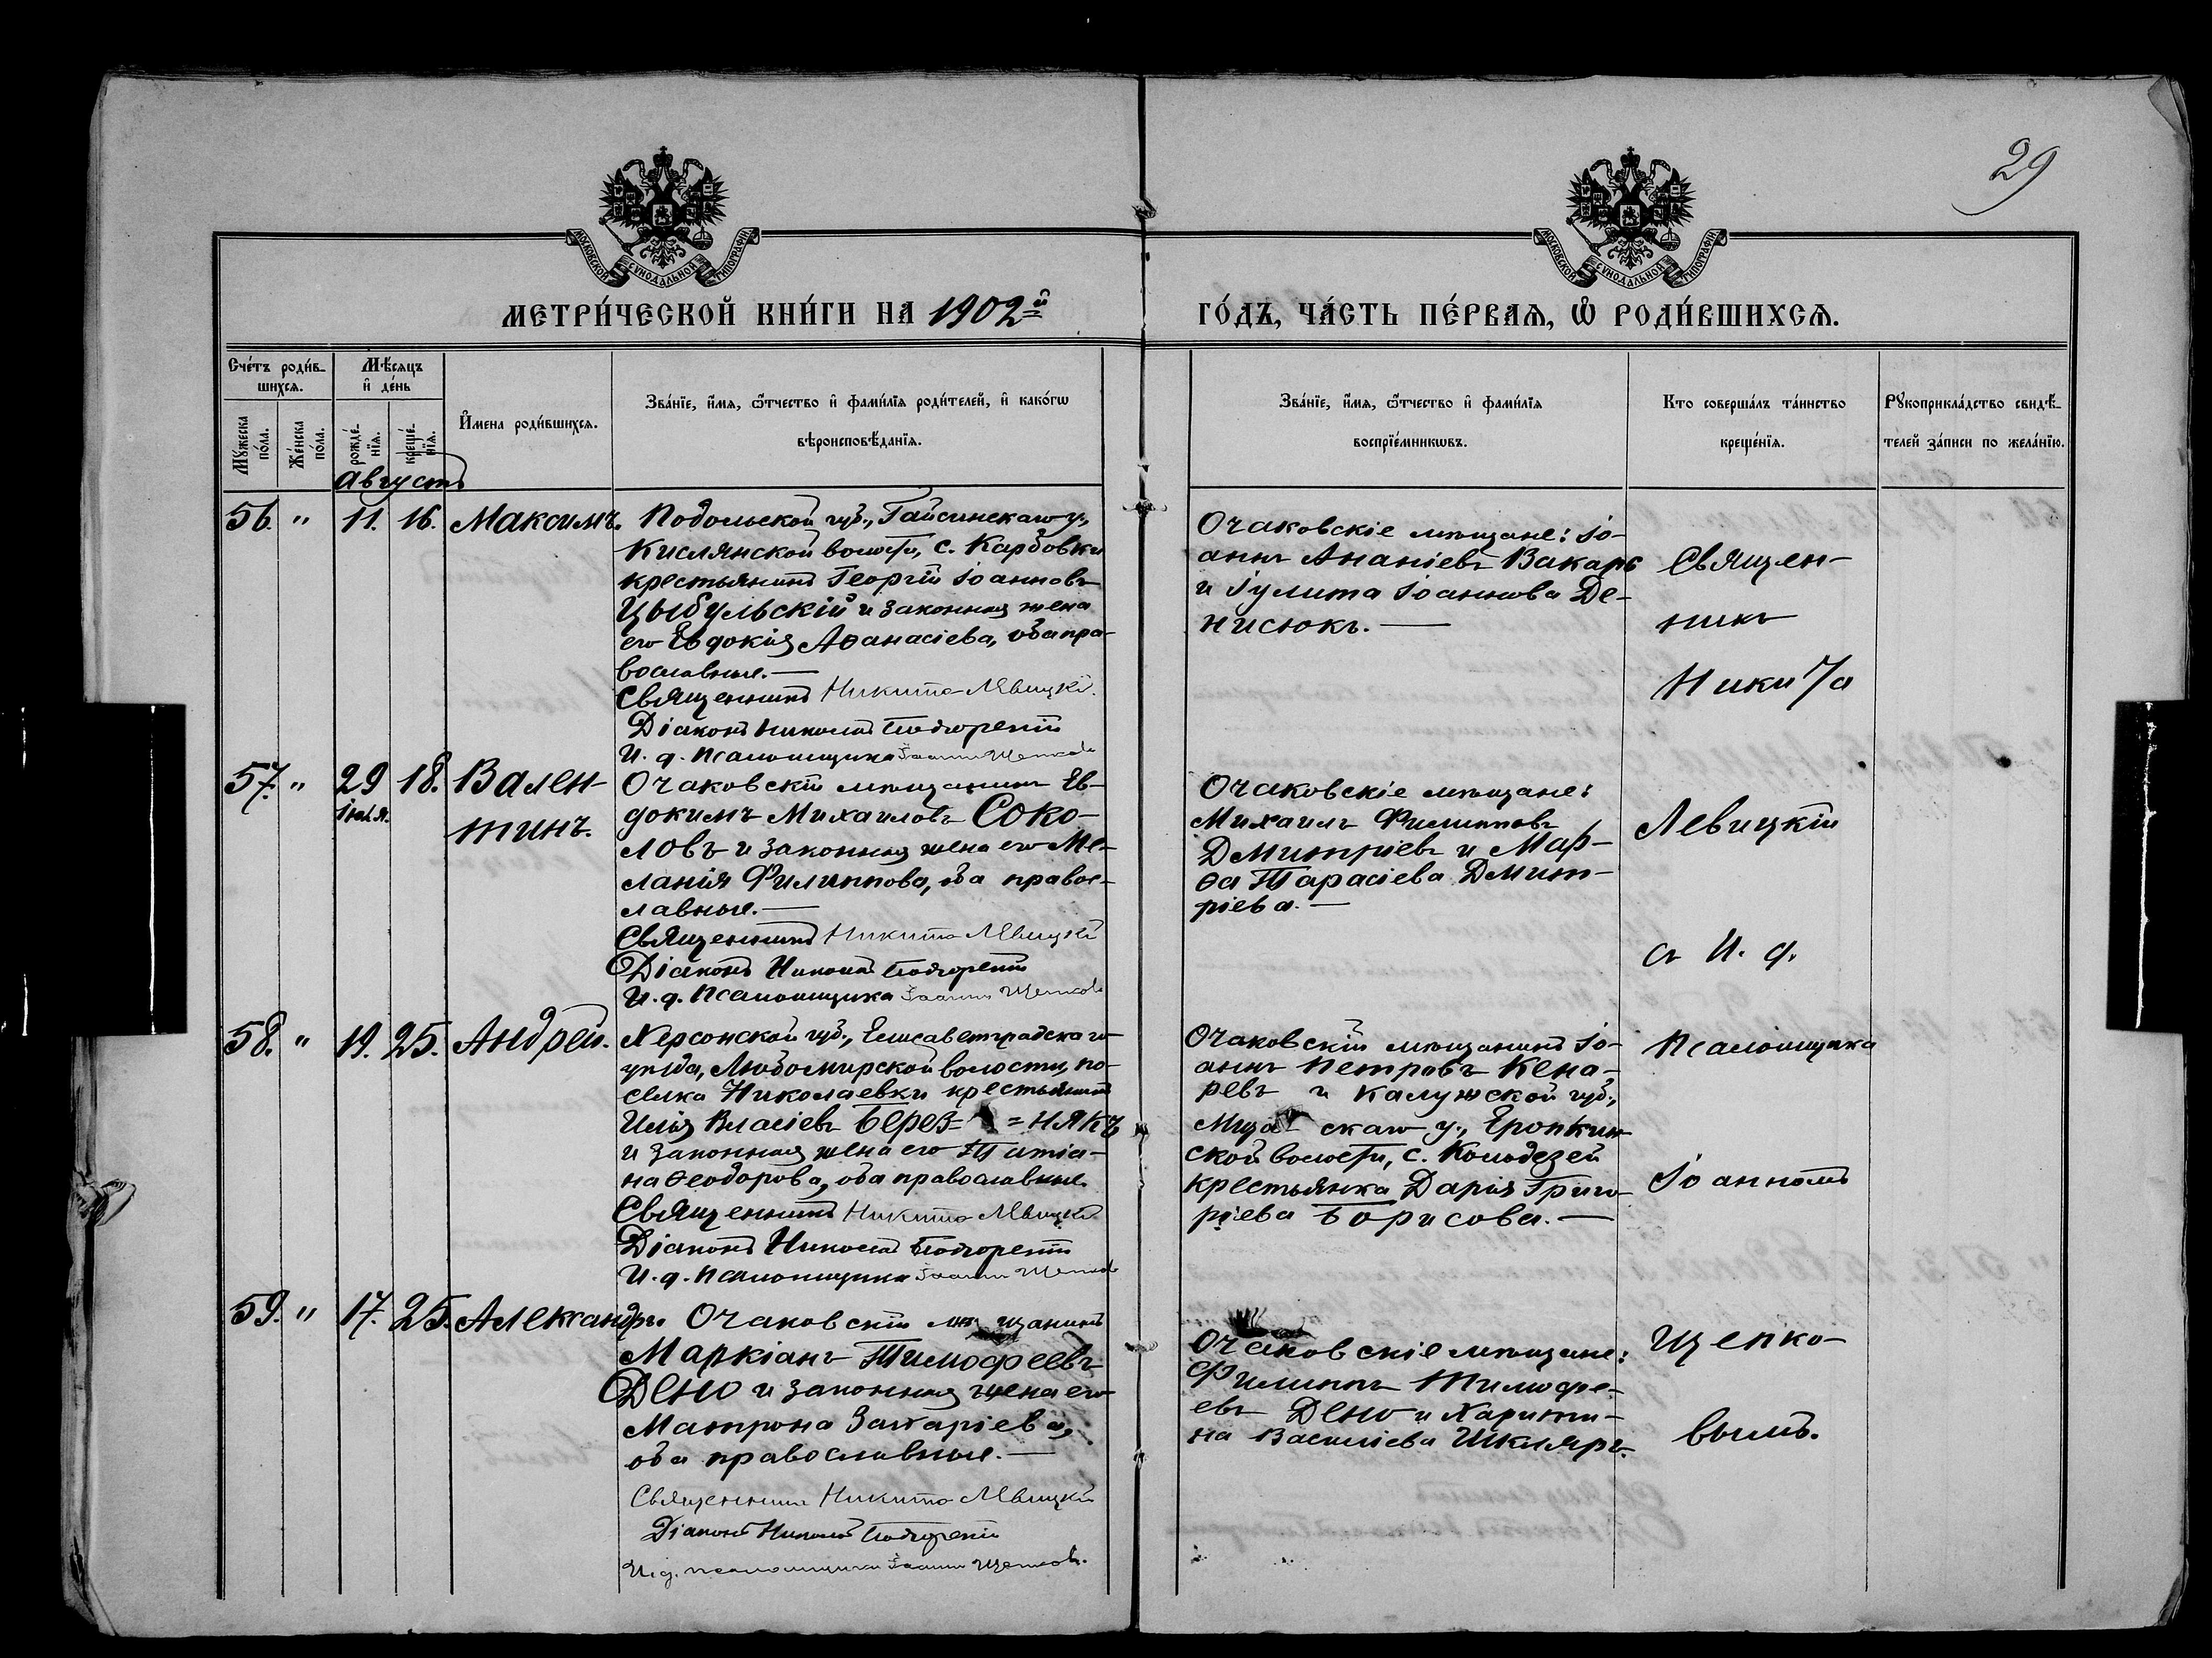 29
МОСКОВСКОЙ СУНОДАЛЬНОЙ ТИПОГРАФІИ
МОСКОВСКОЙ СУНОДАЛЬНОЙ ТИПОГРАФІИ
МЕТРИ́ЧЕСКОЙ КНИ́ГИ НА 1902й
ГО́ДЪ, ЧА́СТЬ ПЕ́РВАѦ, Ѡ РОДИ́ВШИХСѦ.
Сче́тъ роди́в-
шихсѧ.
Мѣ́сѧцъ
и҆ де́нь
Мꙋжеска
по́ла.
Же́нска
по́ла.
рожде́-
нїѧ.
креще́-
нїѧ.
И҆мена роди́вшихсѧ.
Зва́нїе, и҆́мѧ, ѻ҆́тчество и҆ фами́лїѧ роди́телей, и҆ како́гѡ
вѣроисповѣ́данїѧ.
Зва́нїе, и҆́мѧ, ѻ҆́тчество и҆ фами́лїѧ
воспрїе́мникѡвъ.
Кто соверша́лъ та́инство
креще́нїѧ.
Рꙋкоприкла́дство свидѣ́-
телей за́писи по жела́нїю.
Августъ
56. " 11. 16. Максимъ.
Подольской губ., Гайсинскаго у.,
Кислянской волости, с. Карбовки
крестьянинъ Георгій Іоанновъ
Цыбульскій и законная жена
его Евдокія Аѳанасіева, оба пра-
вославные.—
Священникъ Никита Левицкій.
Діаконъ Николай
И. д. псаломщика Іоаннъ Щепковъ
Очаковскіе мѣщане: Іо-
аннъ Ананіевъ Вакарь
и Іулита Іоаннова Де-
нисюкъ.—
Священ-
никъ
Никита
57. " 29 18. Вален-
Іюля.
тинъ.
Очаковскій мѣщанинъ Ев-
докимъ Михаиловъ Соко-
ловъ и законная жена его Ме-
ланія Филиппова, оба правос-
лавные.—
Священникъ Никита Левицкій
Діаконъ Николай
И. д. псаломщика Іоаннъ Щепковъ
Очаковскіе мѣщане:
Михаилъ Филипповъ
Дмитріевъ и Мар-
ѳа Тарасіева Дмит-
ріева.—
Левицкій
съ И. д.
58. " 19. 25. Андрей.
Херсонской губ., Елисаветградскаго
уѣзда, Любомирской волости, по-
селка Николаевки крестьянинъ
Илія Власіевъ Берез= =някъ
и законная жена его Татіа-
на Ѳеодорова, оба православные.
Священникъ Никита Левицкій
Діаконъ Николай
И. д. псаломщика Іоаннъ Щепковъ
Очаковскій мѣщанинъ Іо-
аннъ Петровъ Кена-
ревъ и Калужской губ.,
скаго у., Еропкин-
ской волости, с. Колодезей
крестьянка Дарія Григо-
ріева Борисова.—
псаломщика
Іоанномъ
59. " 17. 25. Александръ.
Очаковскій мѣщанинъ
Маркіанъ Тимофеевъ
Дено и законная жена его
Матрона Захаріева,
оба православные.—
Священникъ Никита Левицкій
Діаконъ Николай
И. д. псаломщика Іоаннъ Щепковъ.
Очаковскіе мѣщане:
Филиппъ Тимофе-
евъ Дено и Харити-
на Василіева Шкляръ.
Щепко-
вымъ.